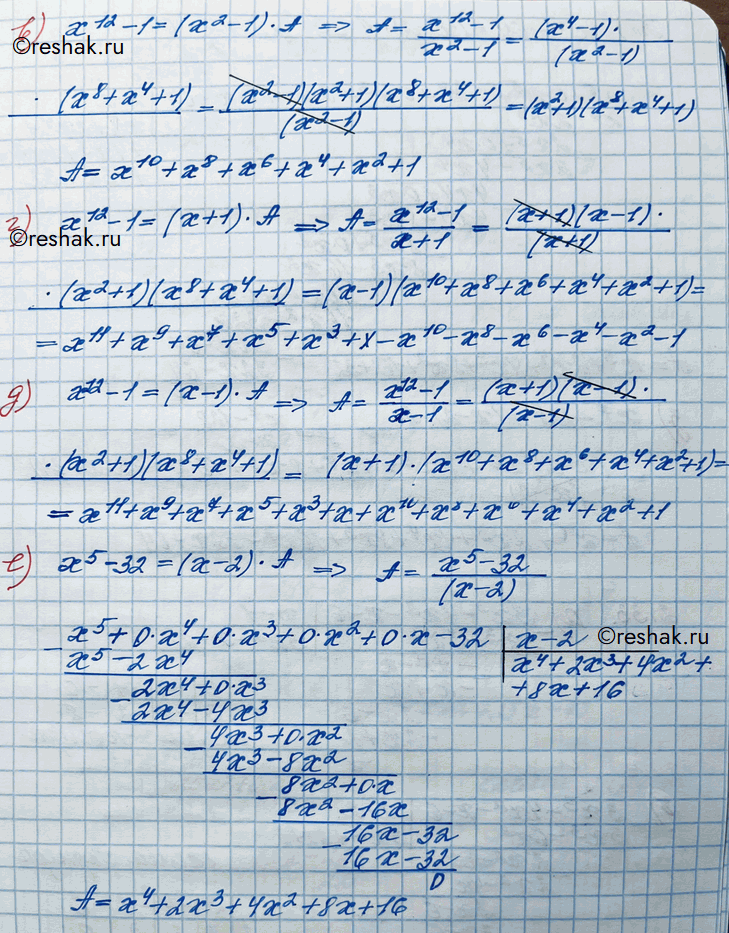 в) x¹² - 1 = (x² - 1) · A => A = (x¹² - 1)/(x² - 1) = (x⁴ - 1) ·/(x² - 1)
©reshak.ru
· (x⁸ + x⁴ + 1) = (x² - 1)(x² + 1)(x⁸ + x⁴ + 1)/(x² - 1) = (x² + 1)(x⁸ + x⁴ + 1)
A = x¹⁰ + x⁸ + x⁶ + x⁴ + x² + 1
г) x¹² - 1 = (x + 1) · A => A = (x¹² - 1)/(x + 1) = (x + 1)(x - 1) ·/(x + 1)
©reshak.ru
· (x² + 1)(x⁸ + x⁴ + 1) = (x - 1)(x¹⁰ + x⁸ + x⁶ + x⁴ + x² + 1) =
= x¹¹ + x⁹ + x⁷ + x⁵ + x³ + x - x¹⁰ - x⁸ - x⁶ - x⁴ - x² - 1
д) x¹² - 1 = (x - 1) · A => A = (x¹² - 1)/(x - 1) = (x + 1)(x - 1) ·/(x - 1)
· (x² + 1)(x⁸ + x⁴ + 1) = (x + 1) · (x¹⁰ + x⁸ + x⁶ + x⁴ + x² + 1) =
= x¹¹ + x⁹ + x⁷ + x⁵ + x³ + x + x¹⁰ + x⁸ + x⁶ + x⁴ + x² + 1
е) x⁵ - 32 = (x - 2) · A => A = (x⁵ - 32)/(x - 2)
- x⁵ + 0·x⁴ + 0·x³ + 0·x² + 0·x - 32 | x - 2 ©reshak.ru
x⁵ - 2x⁴ | x⁴ + 2x³ + 4x² +
- 2x⁴ + 0·x³ + 8x + 16
2x⁴ - 4x³
- 4x³ + 0·x²
4x³ - 8x²
- 8x² + 0·x
8x² - 16x
- 16x - 32
16x - 32
0
A = x⁴ + 2x³ + 4x² + 8x + 16